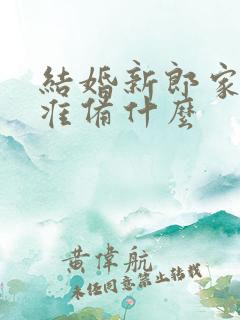 結婚新郎家
准備什麼
黃偉航
未经同意禁止转载